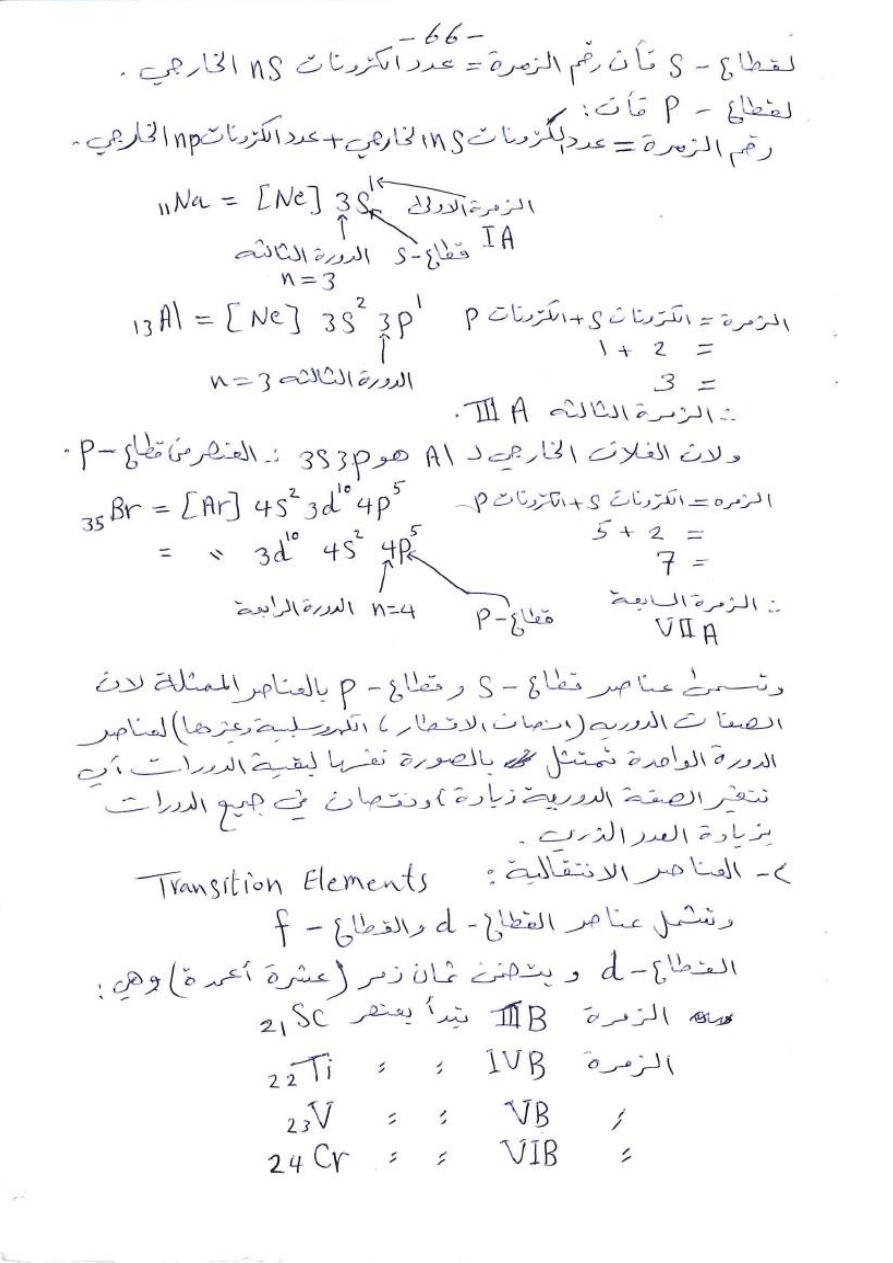 -66-
لقطاع - S فأن رقم الزمرة = عدد الكترونات nS الخارجي .
لقطاع - P فأن :
رقم الزمرة = عدد الكترونات nS الخارجي + عدد الكترونات np الخارجي .
₁₁Na = [Ne] 3S¹ الزمرة الاولى
IA
قطاع-S الدورة الثالثه
n=3
₁₃Al = [Ne] 3S² 3p¹ الزمرة = الكترونات S + الكترونات P
= 2 + 1
= 3
الدورة الثالثه n=3
∴ الزمرة الثالثه III A .
ولان الغلاف الخارجي لـ Al هو 3S3p ∴ العنصر من قطاع-P .
₃₅Br = [Ar] 4S² 3d¹⁰ 4p⁵ الزمره = الكترونات S + الكترونات P
= 2 + 5
= 〃 3d¹⁰ 4S² 4P⁵
= 7
n=4 الدورة الرابعة
قطاع-P
∴ الزمرة السابعة
VII A
وتسمى عناصر قطاع - S وقطاع - P بالعناصر الممثلة لان
الصفات الدورية (انصاف الاقطار ، الكهروسلبية وغيرها) لعناصر
الدورة الواحدة تتمثل بالصورة نفسها لبقية الدورات أي
تتغير الصفة الدورية زيادة، ونقصان في جميع الدورات
بزيادة العدد الذري .
٢- العناصر الانتقالية : Transition Elements
وتشمل عناصر القطاع - d والقطاع - f
القطاع-d ويتضمن ثمان زمر (عشرة أعمدة) وهي :
الزمرة IIIB تبدأ بعنصر ₂₁Sc
الزمرة IVB 〃 〃 ₂₂Ti
〃 VB 〃 〃 ₂₃V
〃 VIB 〃 〃 ₂₄Cr